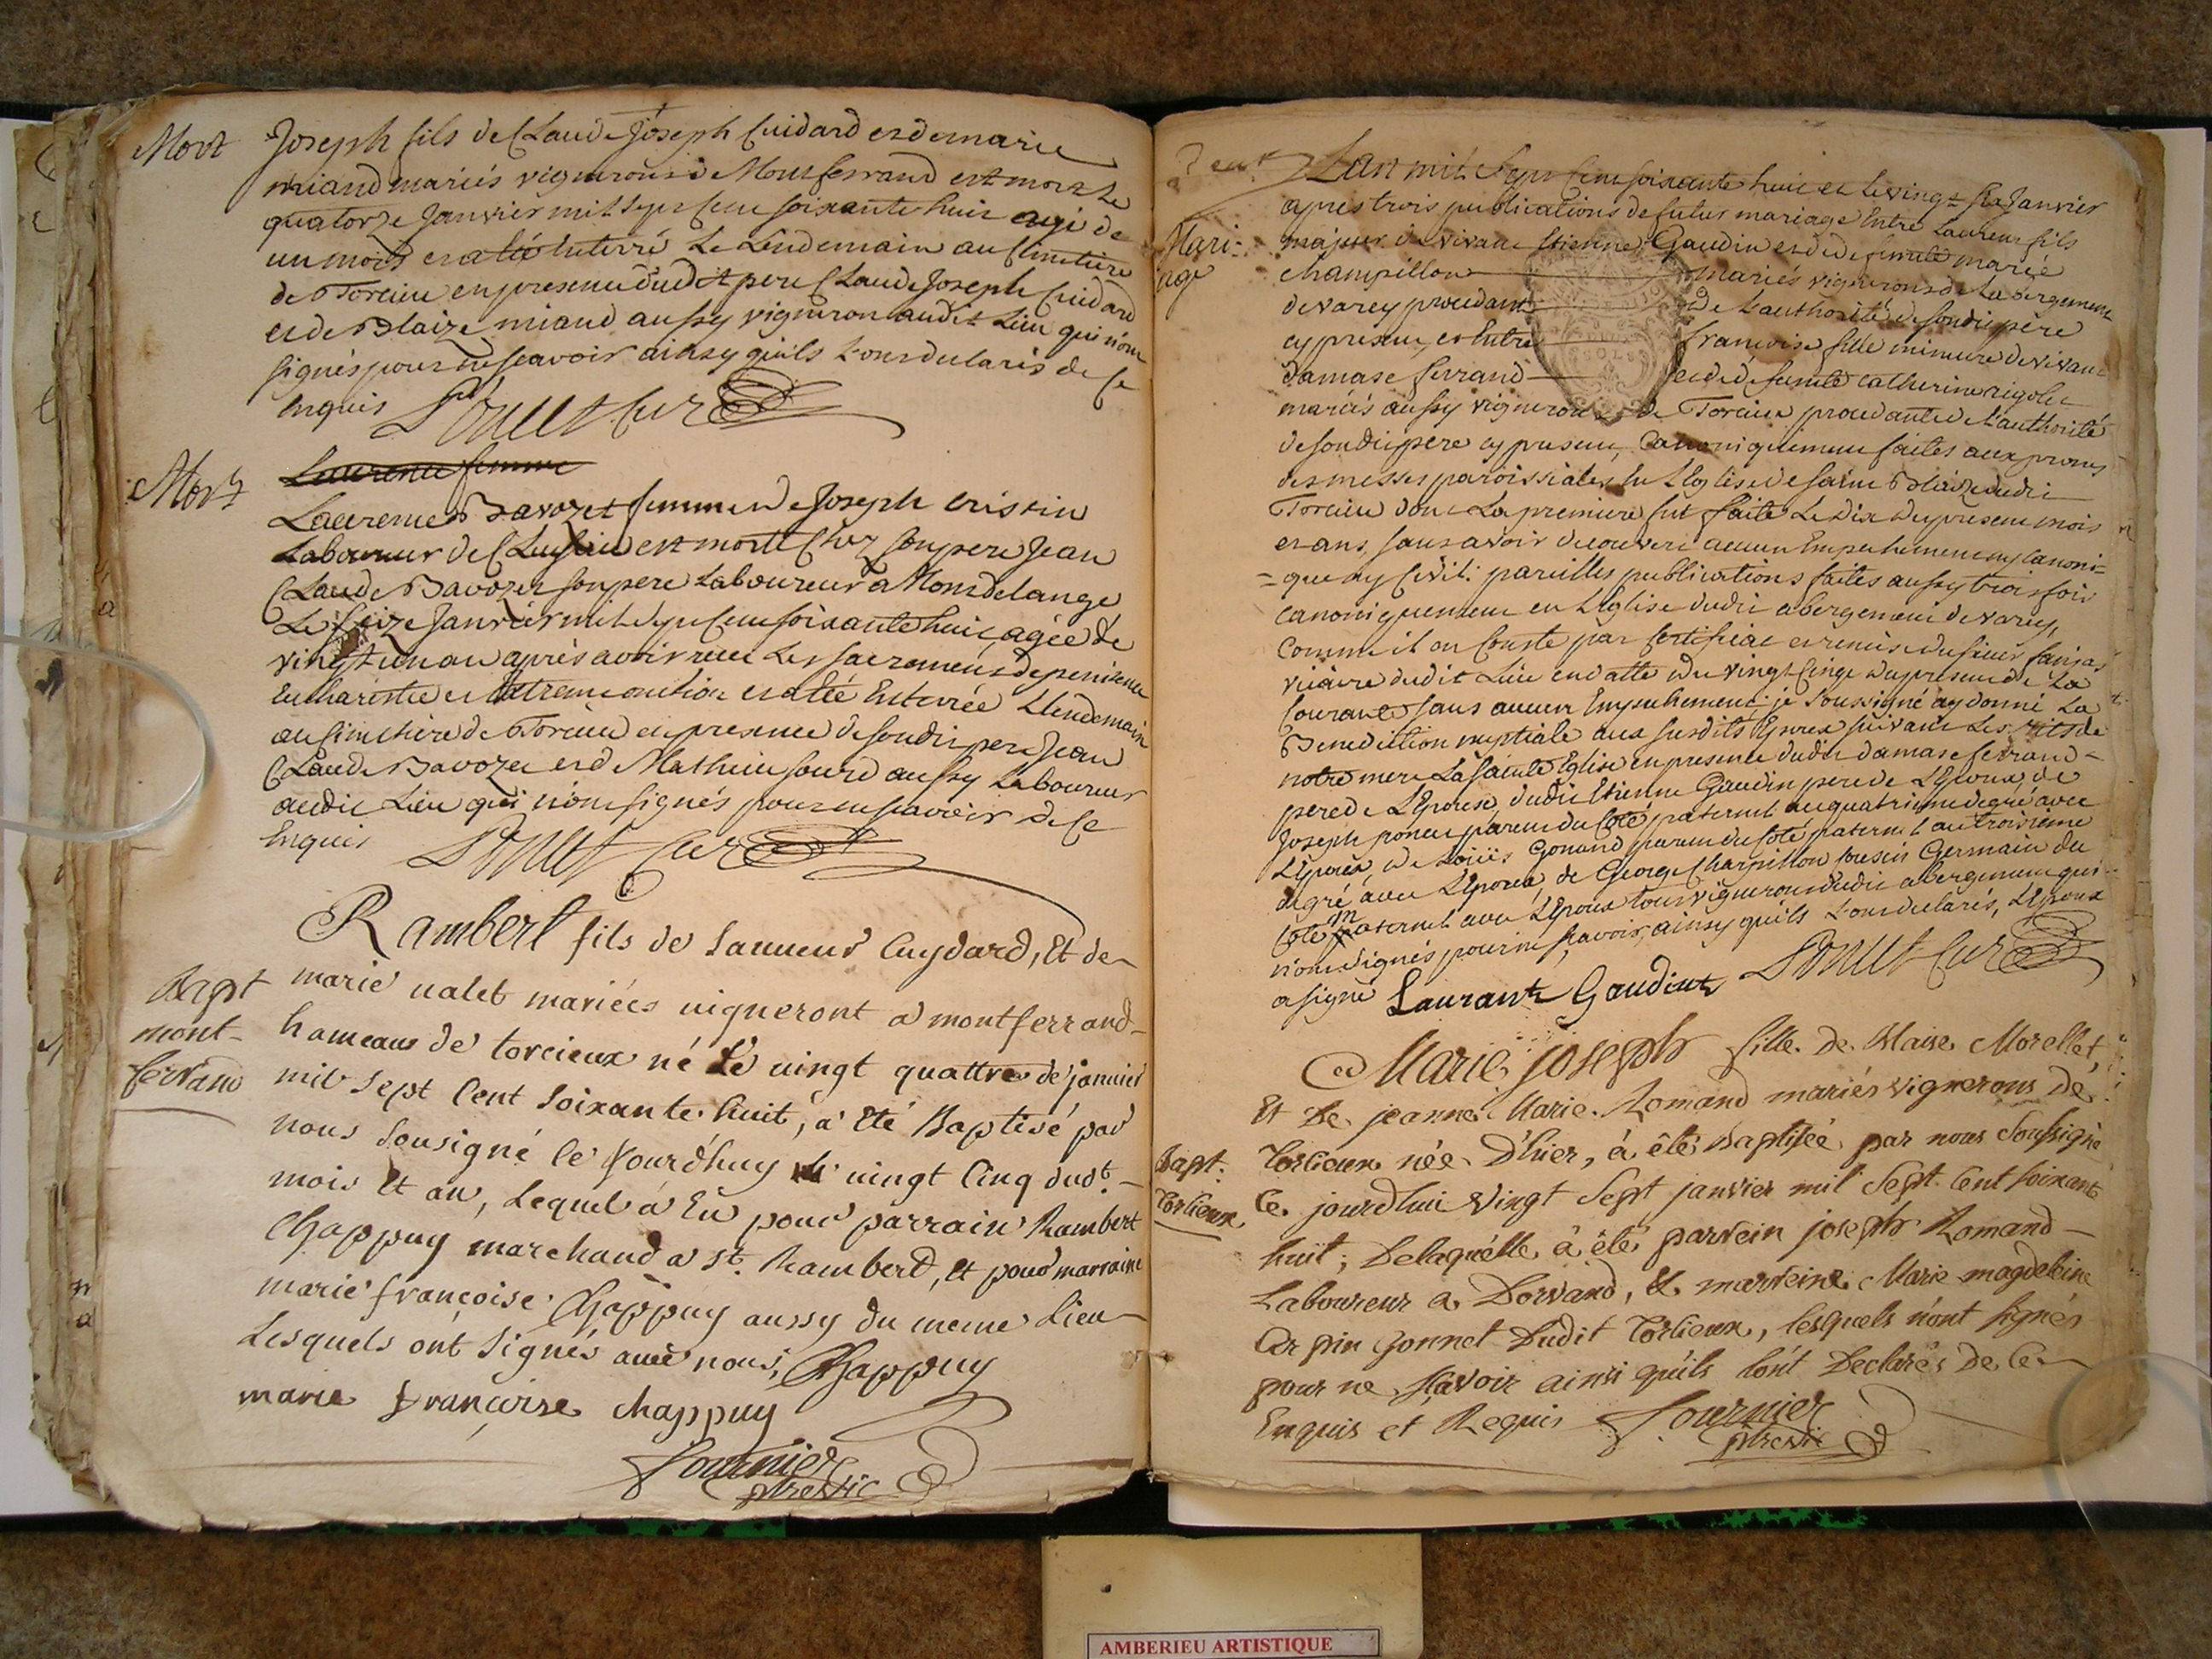 Mort
Joseph fils de Claude Joseph Cuidard et de marie
miand mariés vignerons de Monferrand est mort le
quatorze Janvier mil sept cent soixante huit agé de
un mois et a été enterré le lendemain au Cimetiere
de Torcieu en presence dudit pere Claude Joseph Cuidard
et de Blaize miand aussy vigneron audit Lieu qui n'ont
signés pour ne scavoir ainsy qu'ils l'ont declarés de ce
enquis
Curé
Mort
Laurence femme
Laurence Bavozet femme de Joseph
Laboureur de est morte Chez son pere Jean
Claude Bavozet son pere Laboureur a Montdelange
Le seize Janvier mil sept cent soixante huit, agée de
vingt un an après avoir receu Les sacrements de penitence
Eucharistie et extreme onction et a été Enterrée Le lendemain
au Cimetiere de Torcieu en presence de son dit pere Jean
Claude Bavozet et de Mathieu aussy Laboureur
audit Lieu qui n'ont signés pour ne scavoir de ce
enquis
Curé
Bapt
mont-
ferrand
Rambert fils de Cuydard, Et de
marie valet mariées vigneront a montferrand
hameaux de torcieux né Le vingt quattre de janvier
mil sept Cent soixante huit, a Eté Baptisé par
nous sousigné Ce Jourdhuy vingt Cinq dudt
mois Et an, Lequel a Eu pour parrain Rambert
Chappuy marchand a St Rambert, Et pour marraine
marie françoise Chappuy aussy du meme Lieu
Lesquels ont signés avec nous, Chappuy
marie françoise chappuy
fournier
ptre vic
Mari-
age
L'an mil sept Cent soixante huit et le vingt Janvier
apres trois publications de futur mariage Entre Laurent fils
majeur de vivant Etienne Gaudin et de defunte marie
Champillon mariés vignerons de Labergement
de varey procedant de L'authorité de son dit père
cy present, et Entre francoise fille mineure de vivant
damase ferrand et de defunte Catherine rigolet
mariés aussy vignerons de Torcieu procedante de l'authorité
de son dit pere cy present, Canoniquement faites aux prones
des messes paroissiales en L'Eglise de saint Blaize dudit
Torcieu dont La premiere fut faite Le dix du present mois
et ans, sans avoir decouvert aucun Empechement ny canoni=
=que ny Civil: pareilles publications faites aussy trois fois
canoniquement en L'Eglise dudit abergement de varey,
Comme il en Conste par Certificat et remise du sieur
vicaire dudit Lieu en datte du vingt Cinq du present de La
Courante sans aucun Empechement: je soussigné ay donné La
Benediction nuptiale aux susdits Epoux suivant Les rits de
notre mere La sainte Eglise en presence dudit damase ferrand
pere de L'Epouse, dudit Etienne Gaudin pere de L'Epoux, de
Joseph ponce parent du Coté paternel au quatrieme degré avec
L'Epoux, de Loüis Gonand parent du Coté paternel au troisieme
degré avec L'Epoux, de George Charpillon Cousin Germain du
Coté maternel avec L'Epoux tous vignerons dudit abergement qui
n'ont signés pour ne scavoir, ainsy qu'ils L'ont declarés, L'Epoux
a signé Laurant Gaudin Curé
Bapt.
Torcieux
Marie joseph fille de Blaise Morellet
Et De jeanne Marie Romand mariés vignerons de
Torcieux née D'hier, à été Baptisée par nous soussigné
Ce jourdhui Vingt Sept janvier mil Sept Cent soixante
huit; Delaquelle à été parrein joseph Romand
Laboureur a Dorvand, & marreine Marie magdeleine
Carpin gonnet Dudit Torcieux, lesquels n'ont signés
pour ne sçavoir ainsi qu'ils l'ont Declarés De Ce
Enquis et Requis fournier
ptre vic
AMBERIEU ARTISTIQUE